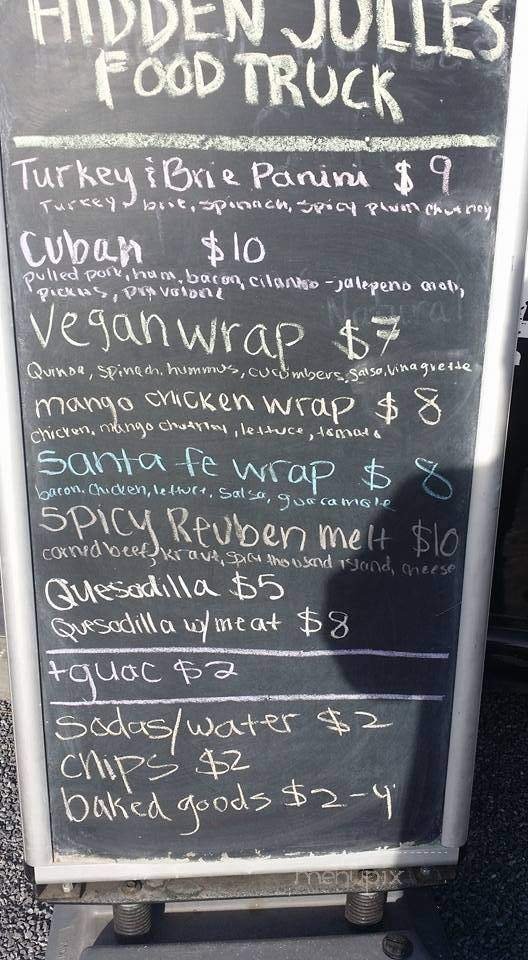 HIDDEN JULLES
FOOD TRUCK
Turkey & Brie Panini $9
Turkey, brie, spinach, spicy plum chutney
Cuban $10
pulled pork, ham, bacon, cilantro - jalepeno aioli,
pickles, provolone
Natural
Vegan wrap $7
Quinoa, spinach, hummus, cucumbers, salsa, vinagrette
mango chicken wrap $8
chicken, mango chutney, lettuce, tomato
Santa fe wrap $8
bacon, chicken, lettuce, salsa, guacamole
Spicy Reuben melt $10
corned beef, kraut, spicy thousand island, cheese
Quesadilla $5
Quesadilla w/meat $8
+guac $2
sodas/water $2
chips $2
baked goods $2-4
menupix